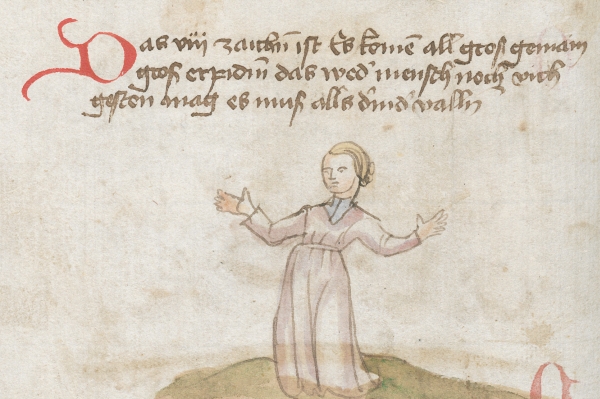 Das viii zaichn̄ ist Es komē all gros gemain
gros erpidm̄ das wed' mensch noch vich
gesten mag es mus alls d'nid' valln̄
D